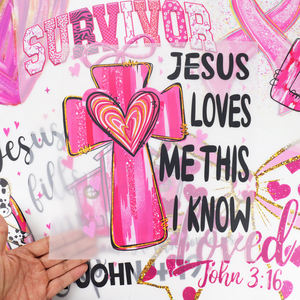 SURVIVOR
JESUS
LOVES
ME THIS
I KNOW
Jesus
Loved
JOHN
John 3:16